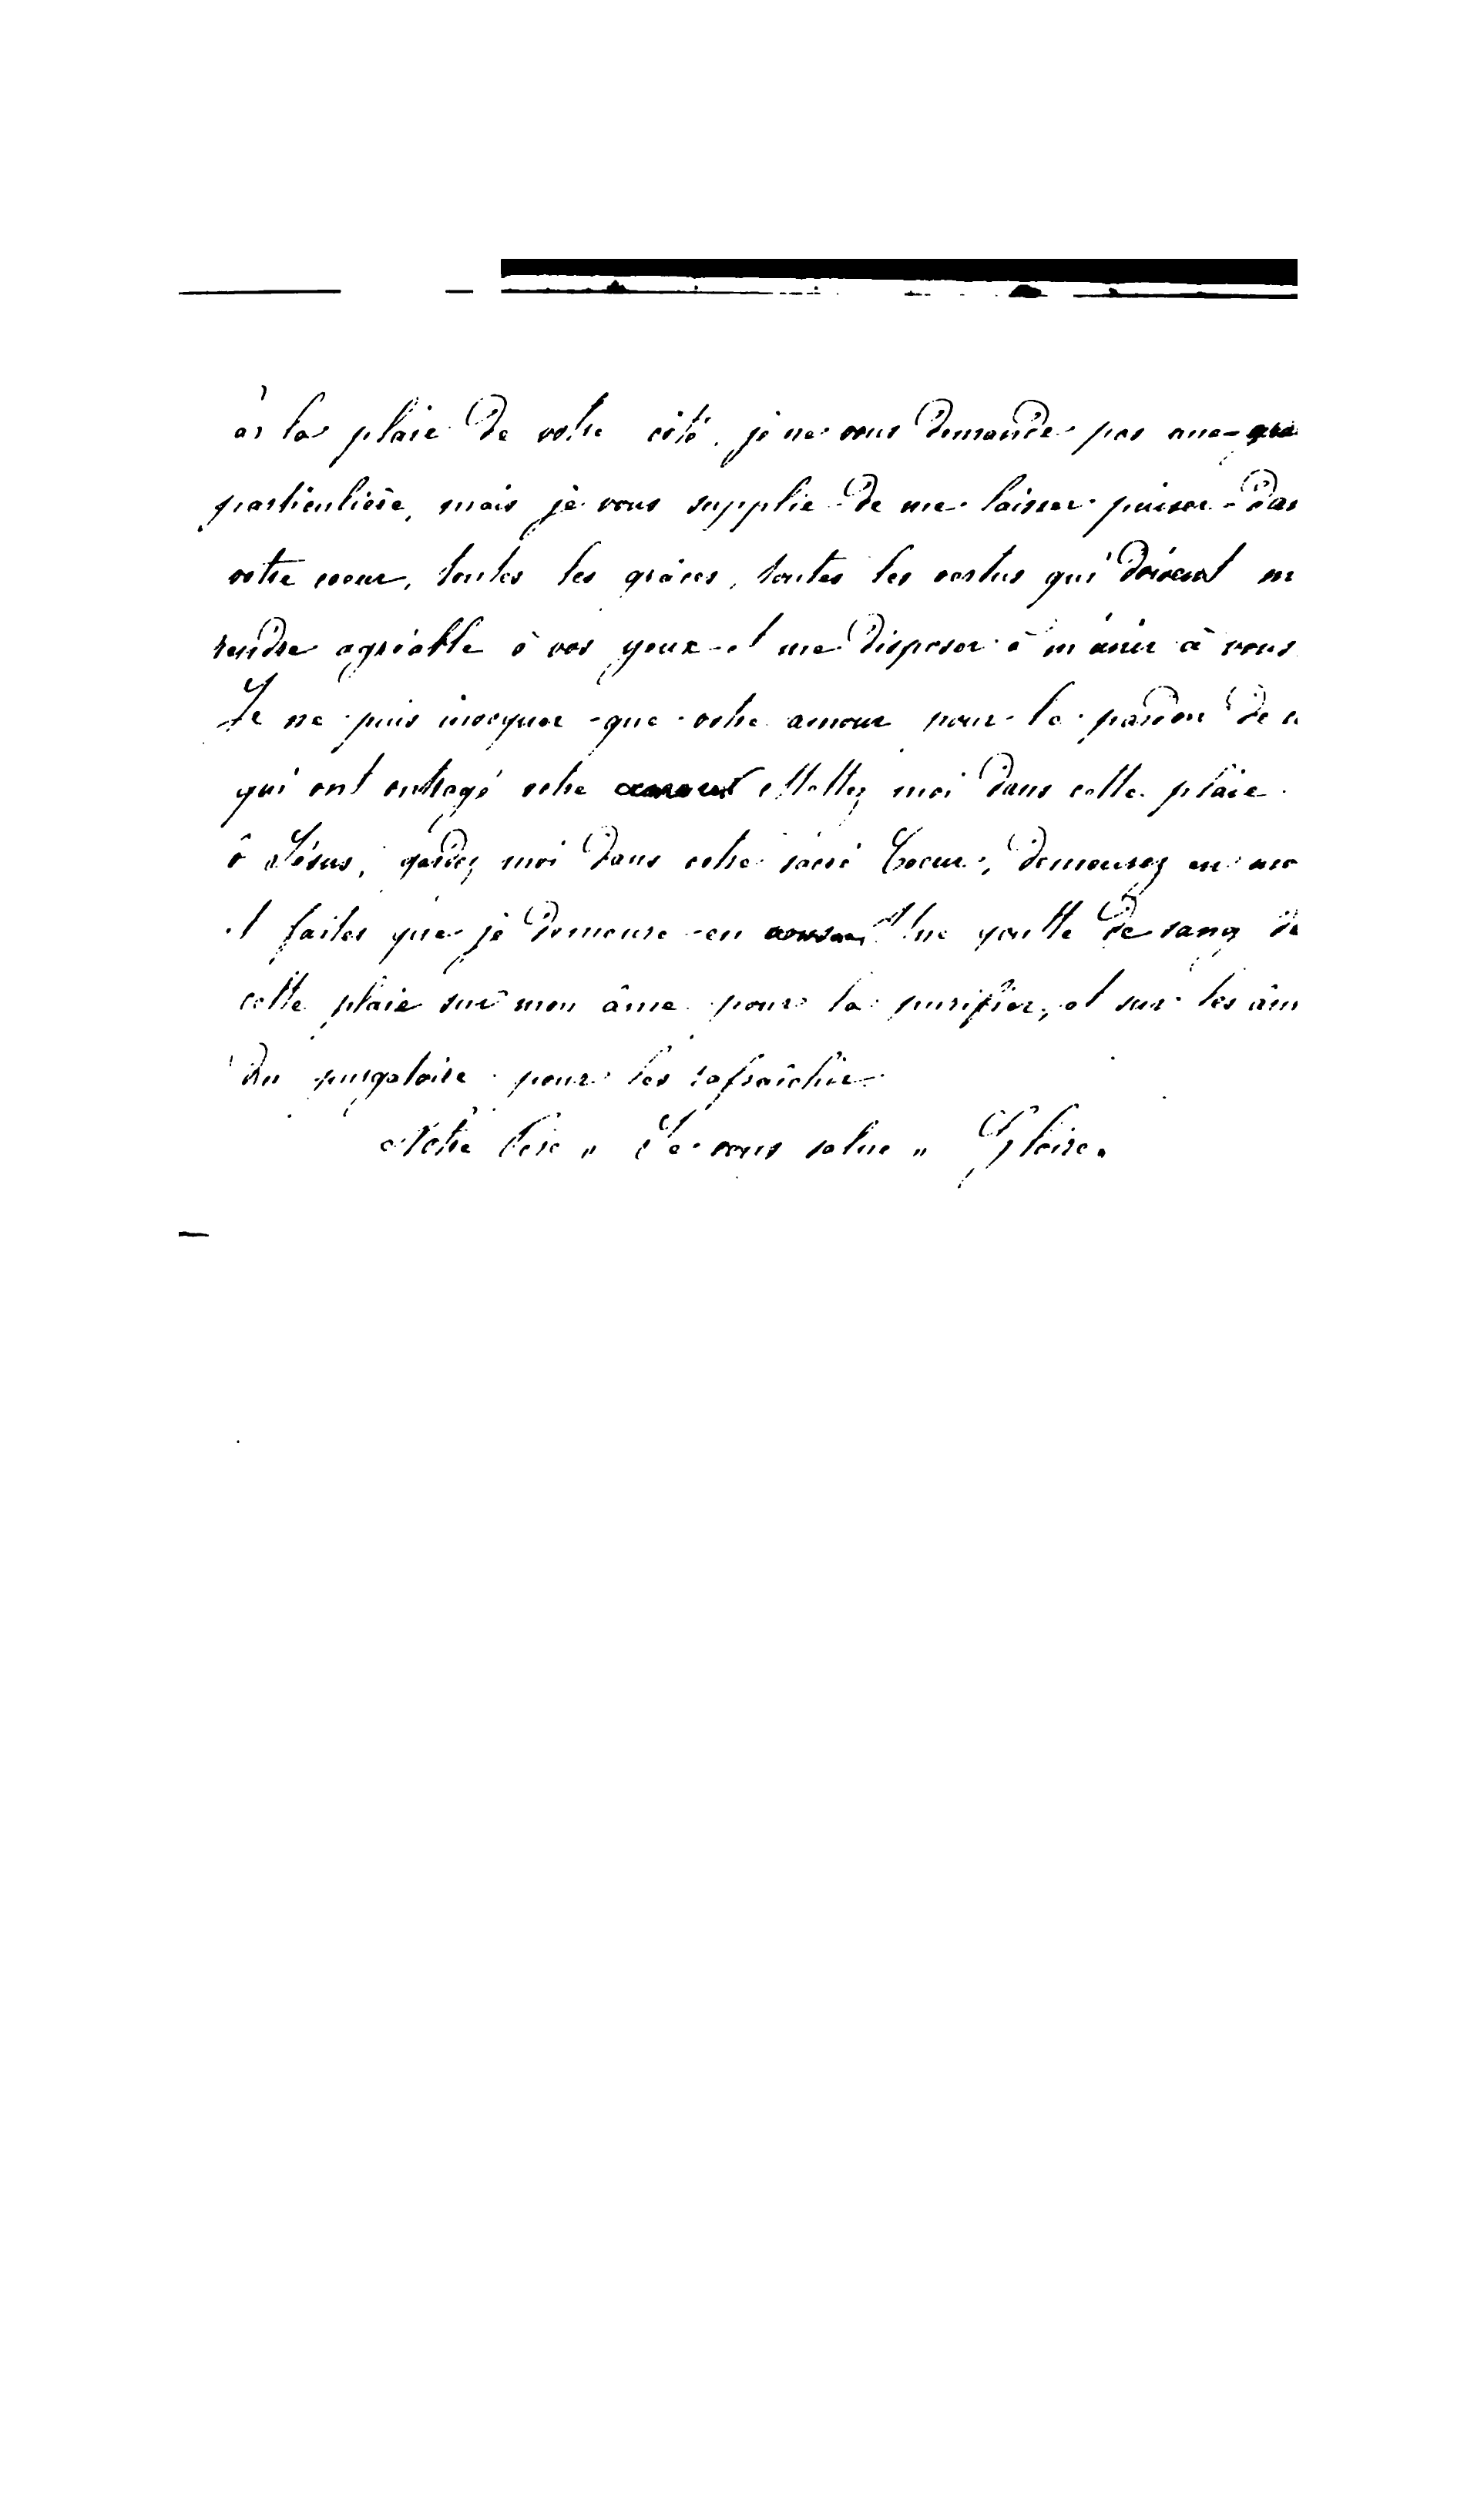 à la plaie de votre côté, je ne vous demande pas une grâ
particulière, mais je vous supplie de me laisser puiser dan
votre coeur, toutes les grâces, toutes les vertus qui doivent m
rendre agréable à vos yeux et me disposer à m'unir à vous
Je ne puis invoquer que votre amour pour le pardon de c
qui ont outragé votre amour Mettez moi dans cette plaie
ô Jésus, gardez moi dans votre sacré Coeur, demeurez en mo
et faites que je demeure en vous Une goutte de sang de
cette plaie sur mon âme pour la purifier, et sur les âm
du purgatoire pour les rafraîchir
Notre Père " Je vous salue " Gloire.